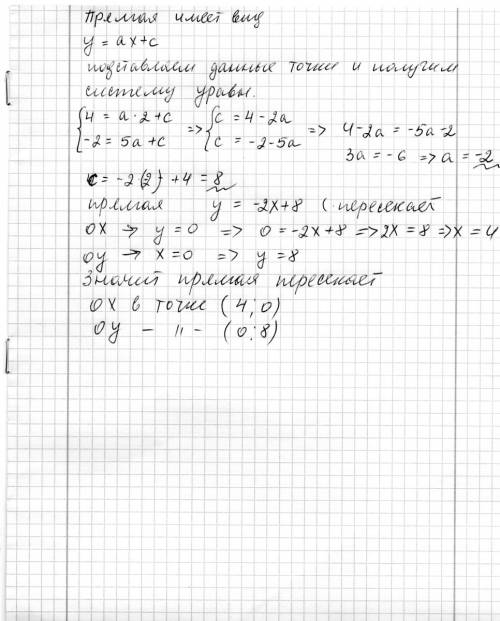 Прямая имеет вид
y = ax+c
подставляем данные точки и получим
систему уравн.
{4 = a·2+c => {c = 4-2a => 4-2a = -5a-2
{-2 = 5a+c {c = -2-5a 3a = -6 => a = -2
c = -2(2) + 4 = 8
прямая y = -2x+8 ( пересекает
OX → y=0 => 0 = -2x+8 => 2x = 8 => x = 4
OY → x=0 => y = 8
Значит прямая пересекает
OX в точке (4;0)
OY - " - (0;8)